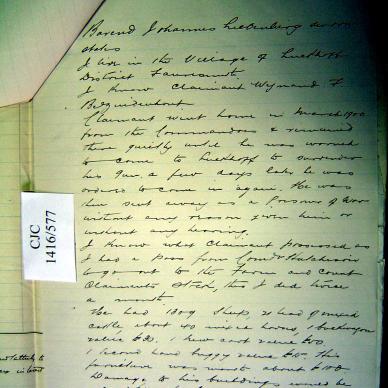 Barend Johannes Liebenberg sworn
states
I live in the Village of Luckhoff
District Fauresmith
I know Claimant Wynand F
Bezuidenhout
Claimant went home in March 1900
from the Commandoes & remained
there quietly until he was warned
to come to Luckhoff to surrender
his Gun, a few days later he was
ordered to come in again. He was
then sent away as a Prisoner of War
without any reason given him or
without any hearing.
I know what Claimant possessed as
I had a Pass from Comdt Hutchinson
to go out to the Farm and count
Claimants Stock, this I did twice
a month
He had 1309 Sheep, 21 head of mixed
cattle, about 40 mixed horses, 1
value £30. 1 new cart value £50.
1 second hand buggy value This
furniture was worth about £100
Damage to his buildings would be
CJC
1416/577